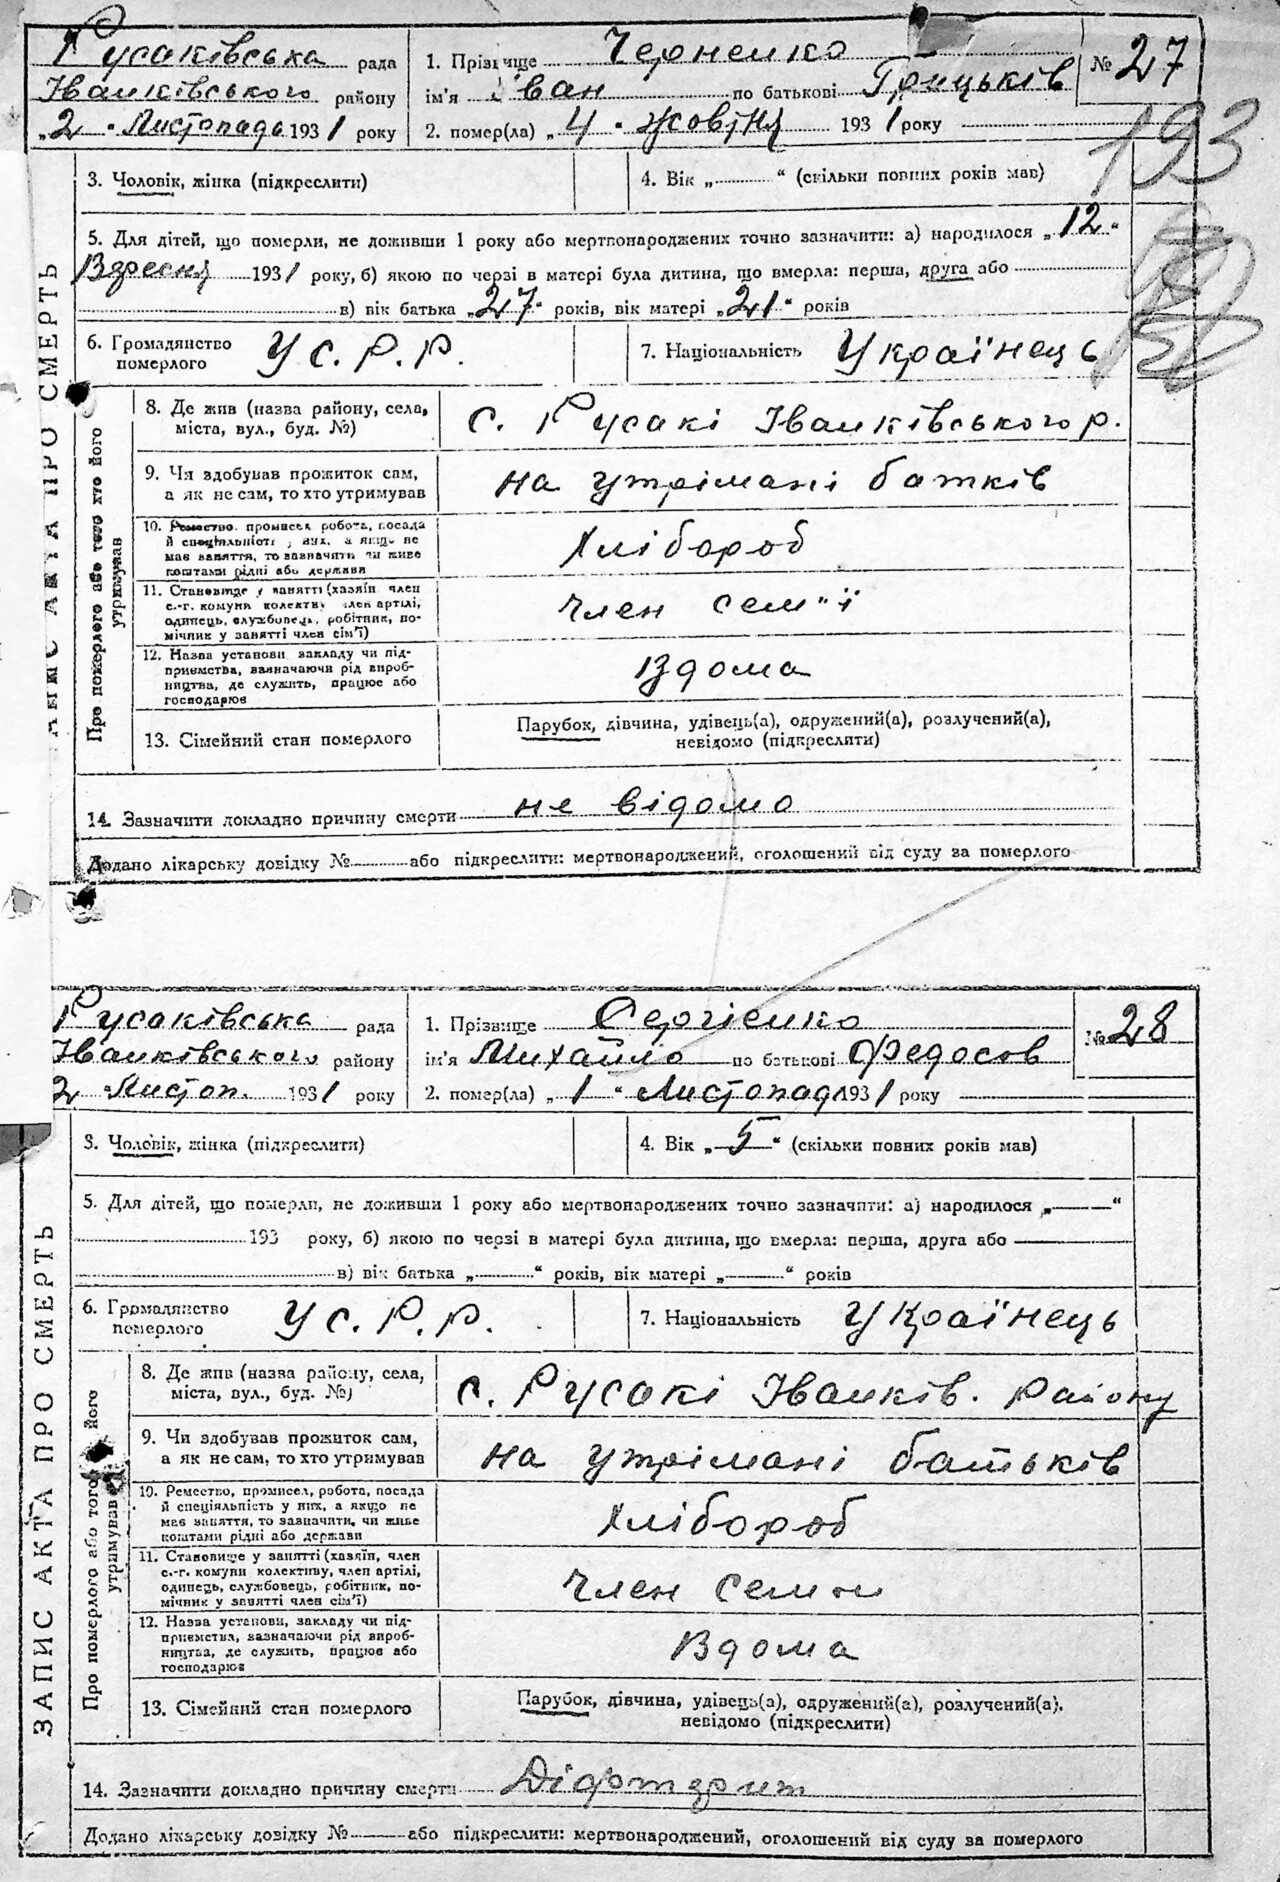 Русаківська рада
Іванківського району
„2" Листопада 1931 року
1. Прізвище Черненко
ім'я Іван по батькові Грицьків
2. помер(ла) „4" жовтня 1931 року
№ 27
193
3. Чоловік, жінка (підкреслити)
4. Вік „ " (скільки повних років мав)
5. Для дітей, що померли, не доживши 1 року або мертвонароджених точно зазначити: а) народилося „12"
Вересня 1931 року, б) якою по черзі в матері була дитина, що вмерла: перша, друга або
в) вік батька „27" років, вік матері „21" років
6. Громадянство
померлого
У С. Р. Р.
7. Національність Українець
8. Де жив (назва району, села,
міста, вул., буд. №)
с. Русакі Іванківського р.
9. Чи здобував прожиток сам,
а як не сам, то хто утримував
на утрімані батків
10. Ремество, промисел, робота, посада
й спеціальність у них, а якщо не
має заняття, то зазначити чи живе
коштами рідні або держави
Хлібороб
11. Становище у занятті (хазяїн, член
с.-г. комуни колективу член артілі,
одинець, службовець, робітник, по-
мічник у занятті член сім'ї)
член сем"ї
12. Назва установи закладу чи під-
приємства, зазначаючи рід вироб-
ництва, де служить, працює або
господарює
Вдома
13. Сімейний стан померлого
Парубок, дівчина, удівець(а), одружений(а), розлучений(а),
невідомо (підкреслити)
Про померлого або того хто його
утримував
14. Зазначити докладно причину смерти не відомо
Додано лікарську довідку № або підкреслити: мертвонароджений, оголошений від суду за померлого
АКТА ПРО СМЕРТЬ
Русаківська рада
Іванківського району
2 Листоп. 1931 року
1. Прізвище Сергієнко
ім'я Михайло по батькові Федосов
2. помер(ла) „1" Листопад 1931 року
№ 28
3. Чоловік, жінка (підкреслити)
4. Вік „5" (скільки повних років мав)
5. Для дітей, що померли, не доживши 1 року або мертвонароджених точно зазначити: а) народилося „—"
193 року, б) якою по черзі в матері була дитина, що вмерла: перша, друга або
в) вік батька „—" років, вік матері „—" років
6. Громадянство
померлого
У С. Р. Р.
7. Національність Українець
8. Де жив (назва району, села,
міста, вул., буд. №)
с. Русакі Іванків. району
9. Чи здобував прожиток сам,
а як не сам, то хто утримував
на утрімані батьків
10. Ремество, промисел, робота, посада
й спеціальність у них, а якщо не
має заняття, то зазначити, чи живе
коштами рідні або держави
Хлібороб
11. Становище у занятті (хазяїн, член
с.-г. комуни колективу, член артілі,
одинець, службовець, робітник, по-
мічник у занятті член сім'ї)
член
12. Назва установи, закладу чи під-
приємства, зазначаючи рід вироб-
ництва, де служить, працює або
господарює
Вдома
13. Сімейний стан померлого
Парубок, дівчина, удівець(а), одружений(а), розлучений(а),
невідомо (підкреслити)
Про померлого або того його
утримував
14. Зазначити докладно причину смерти Діфтэрит
Додано лікарську довідку № або підкреслити: мертвонароджений, оголошений від суду за померлого
ЗАПИС АКТА ПРО СМЕРТЬ